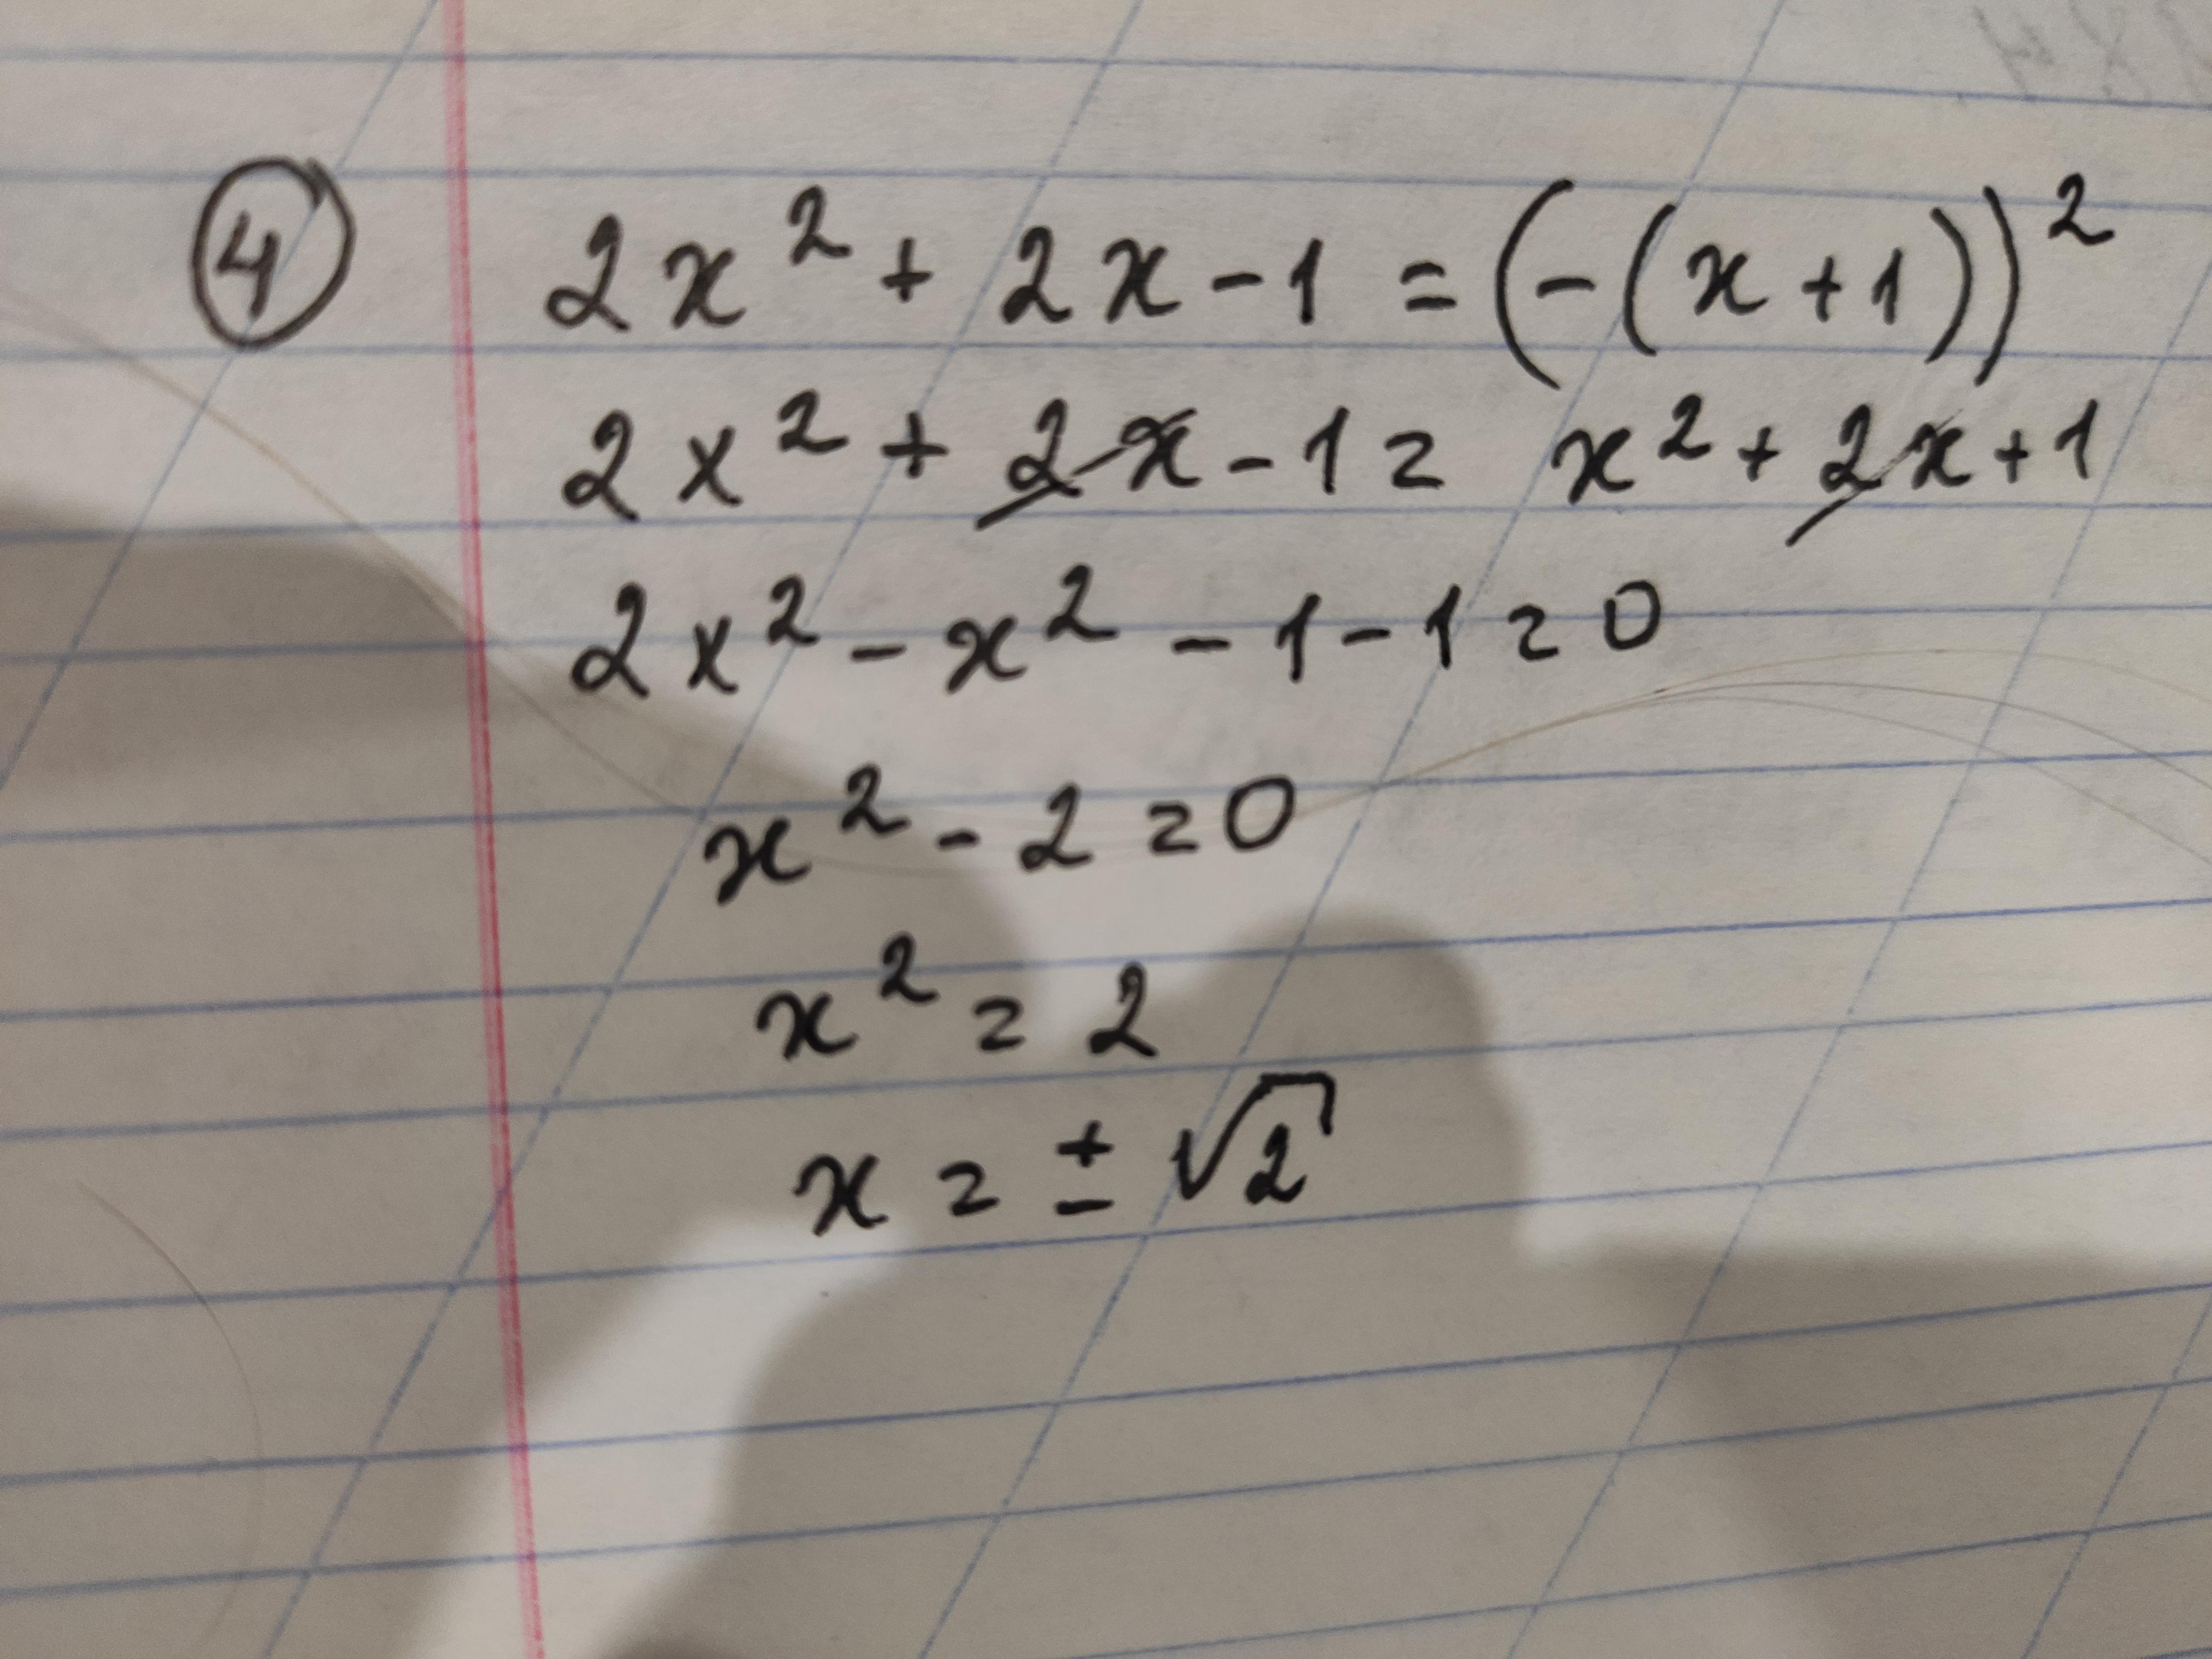 ④ 2x² + 2x - 1 = (-(x+1))²
2x² + 2x - 1 = x² + 2x + 1
2x² - x² - 1 - 1 = 0
x² - 2 = 0
x² = 2
x = ± √2